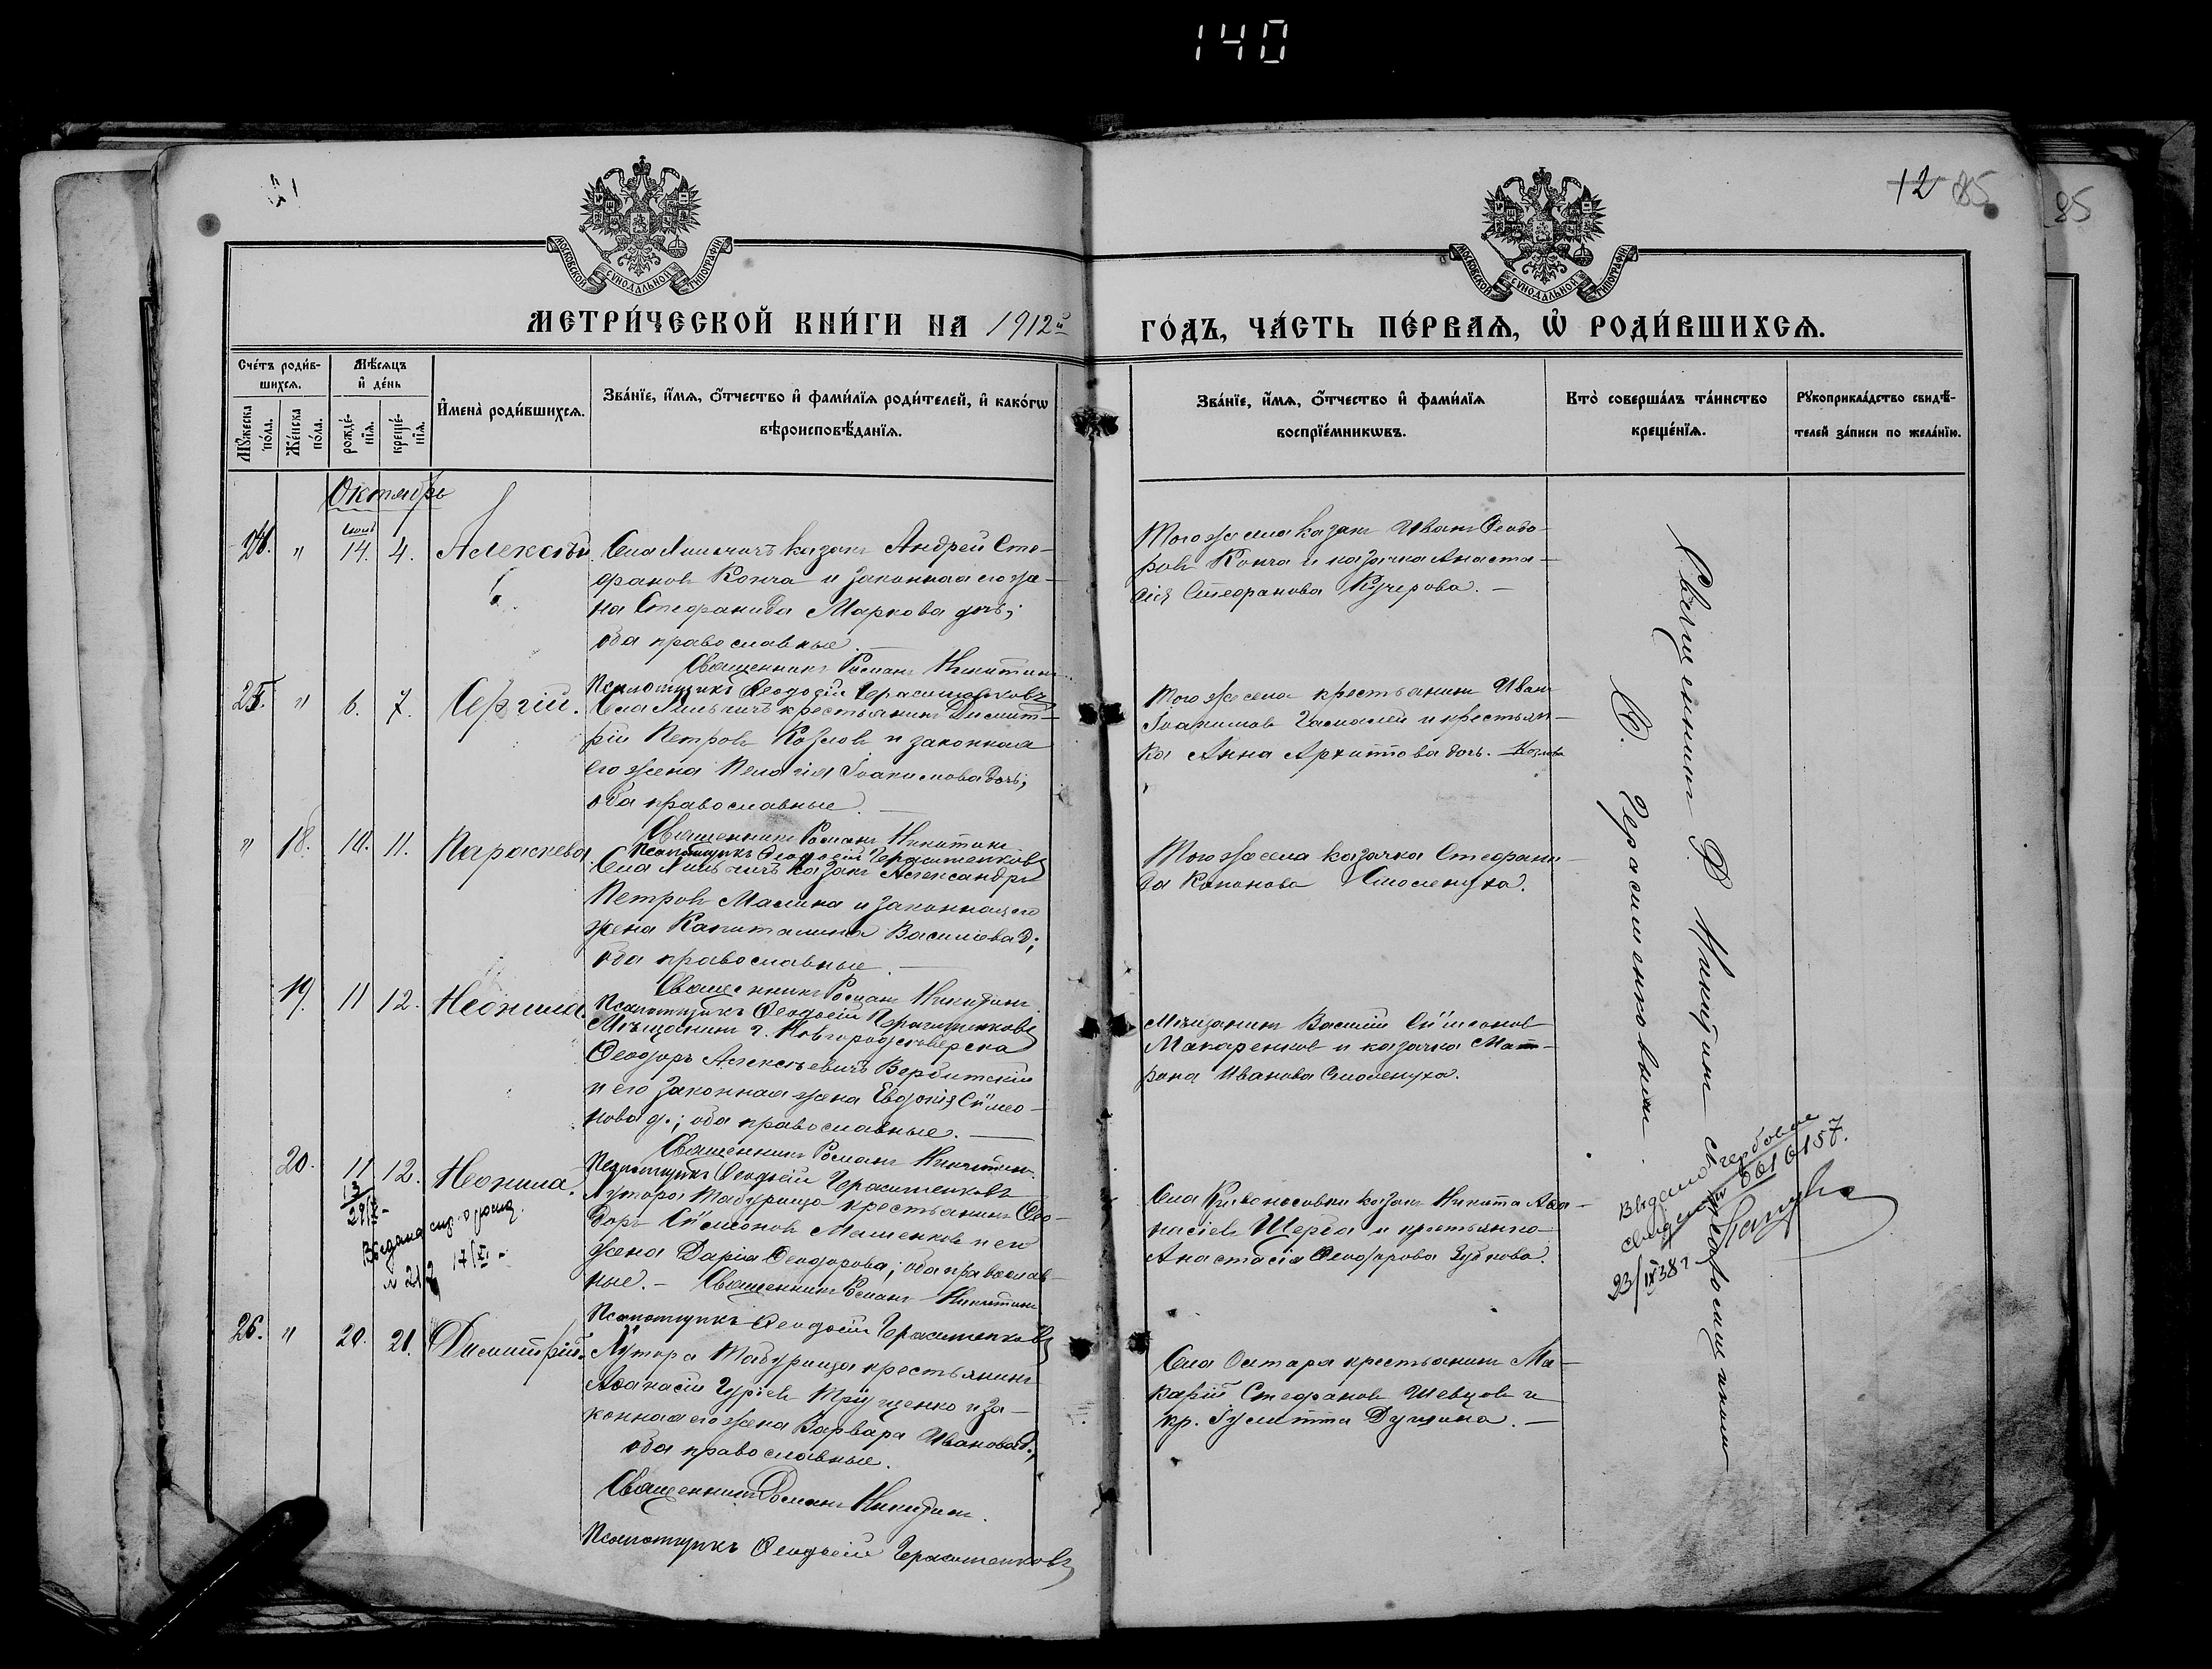 140
12 85
85
МОСКОВСКОЙ СѴНОДАЛЬНОЙ ТИПОГРАФІИ
МОСКОВСКОЙ СѴНОДАЛЬНОЙ ТИПОГРАФІИ
МЕТРИ́ЧЕСКОЙ КНИ́ГИ НА 1912й
ГО́ДЪ, ЧА́СТЬ ПЕ́РВАѦ, Ѡ҆ РОДИ́ВШИХСѦ.
Сче́тъ роди́в-
шихсѧ.
Мꙋ́жеска по́ла.
Же́нска по́ла.
Мѣ́сѧцъ
и҆ де́нь
рожде́-
нїѧ.
креще́-
нїѧ.
И҆мена̀ роди́вшихсѧ.
Зва́нїе, и҆́мѧ, ѻ҆́тчество и҆ фами́лїѧ роди́телей, и҆ како́гѡ
вѣроисповѣ́данїѧ.
Зва́нїе, и҆́мѧ, ѻ҆́тчество и҆ фами́лїѧ
воспрїе́мникѡвъ.
Кто̀ соверша́лъ та́инство
креще́нїѧ.
Рꙋкоприкла́дство свидѣ́-
телей за́писи по жела́нїю.
Октябрь
24. " 14. 4. Алексѣй
Села казакъ Андрей Сте-
фановъ Конча и законная его же-
на Стефанида Маркова дочь;
оба православные. —
Священникъ Романъ Никитинъ
Псаломщикъ Ѳеодосій Герасименковъ
Того же села казакъ Иванъ Ѳеодо-
ровъ Конча и казачка Анаста-
сія Стефанова Кучерова. —
25. " 6. 7. Сергій.
Села крестьянинъ Димит-
рій Петровъ Козловъ и законная
его жена Пелагія Іоакимова дочь;
оба православные. —
Священникъ Романъ Никитинъ
Псаломщикъ Ѳеодосій Герасименковъ
Того же села крестьянинъ Иванъ
Іоакимовъ и крестьян-
ка Анна Архиппова дочь. Козлова
" 18. 10. 11. Параскева
Села казакъ Александръ
Петровъ Малина и законная его
жена Капиталина Василіева д;
оба православные. —
Священникъ Романъ Никитинъ
Псаломщикъ Ѳеодосій Герасименковъ
Того же села казачка Стефани-
да Кононова Смоленуха.
19. 11 12. Неонила
Мѣщанинъ г. Новгородсѣверска
Ѳеодоръ Алексѣевичъ Вербитскій
и его законная жена Евдокія Сѵмео-
нова д.; оба православные. —
Священникъ Романъ Никитинъ
Псаломщикъ Ѳеодосій Герасименковъ
Мѣщанинъ Василій Сѵмеоновъ
Макаренковъ и казачка Мат-
рона Иванова Смоленуха.
20. 11 12. Неонила.
Выдана
17/XI -
Хутора Мадурища крестьянинъ Ѳео-
доръ Сѵмеоновъ Машенковъ и его
жена Дарія Ѳеодорова; оба православ-
ные. — Священникъ Романъ Никитинъ
Псаломщикъ Ѳеодосій Герасименковъ
Села Кривоносовки казакъ Никита Аѳа-
насіевъ Щерба и крестьянка
Анастасія Ѳеодорова Зубкова.
26. " 20. 21. Димитрій.
Хутора Мадурища крестьянинъ
Аѳанасій Гуріевъ и за-
конная его жена Варвара Иванова д.;
оба православные.
Священникъ Романъ Никитинъ.
Псаломщикъ Ѳеодосій Герасименковъ
крестьянинъ Ма-
карій Стефановъ Шевцовъ и
кр. Іулитта —
Священникъ Р Никитинъ съ псаломщикомъ
Ѳ. Герасименковымъ.
Выдано гербовое
0610157.
23/IX 38 г